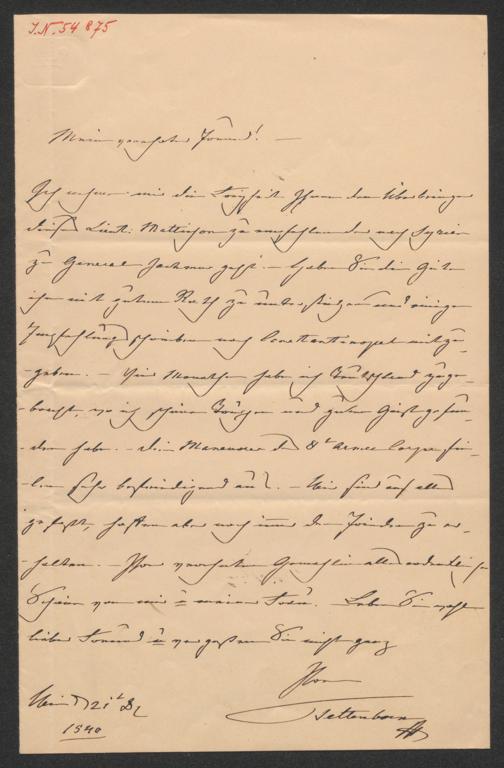 J.N. 54875
Mein verehrter Freund! —
Ich nehme mir die Freyheit Ihnen den Überbringer
dieses Lieut: Mattison zu empfehlen der nach Syrien
zu General Jochmus geht. — Haben Sie die Güte
ihn mit gutem Rath zu unterstützen und einige
Empfehlungsschreiben nach Constantinopel mitzu-
geben. — Monathe habe ich Deutschland zuge-
bracht, wo ich schöne Truppen und guten Geist gefun-
den habe. — die Maneuvre des 8t Armee Corps fie-
len sehr befriedigend aus. — Wir sind auf alles
gefasst, hoffen aber noch immer den Frieden zu er-
halten. Ihrer verehrten Gemahlin alles
Schöne von mir u meiner Frau. Leben Sie wohl
lieber Freund u vergessen Sie nicht ganz
Ihren
Tettenborn
Wien d 21t
1840